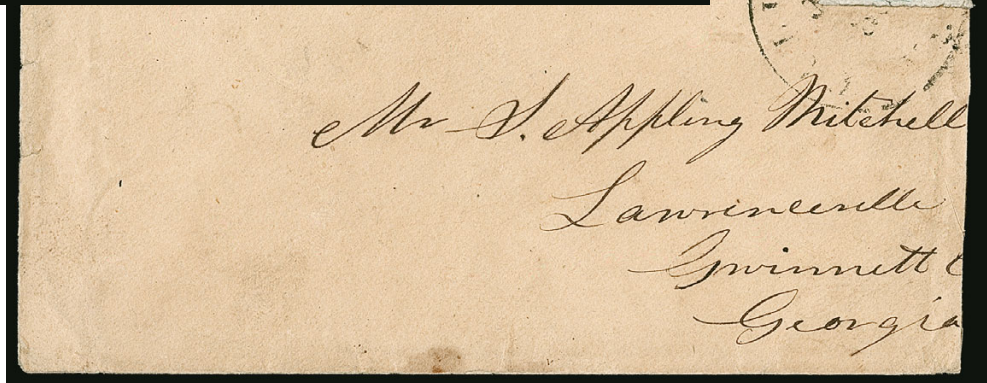 Mr S. Appling Mitchell
Lawrenceville
Gwinnett C
Georgia